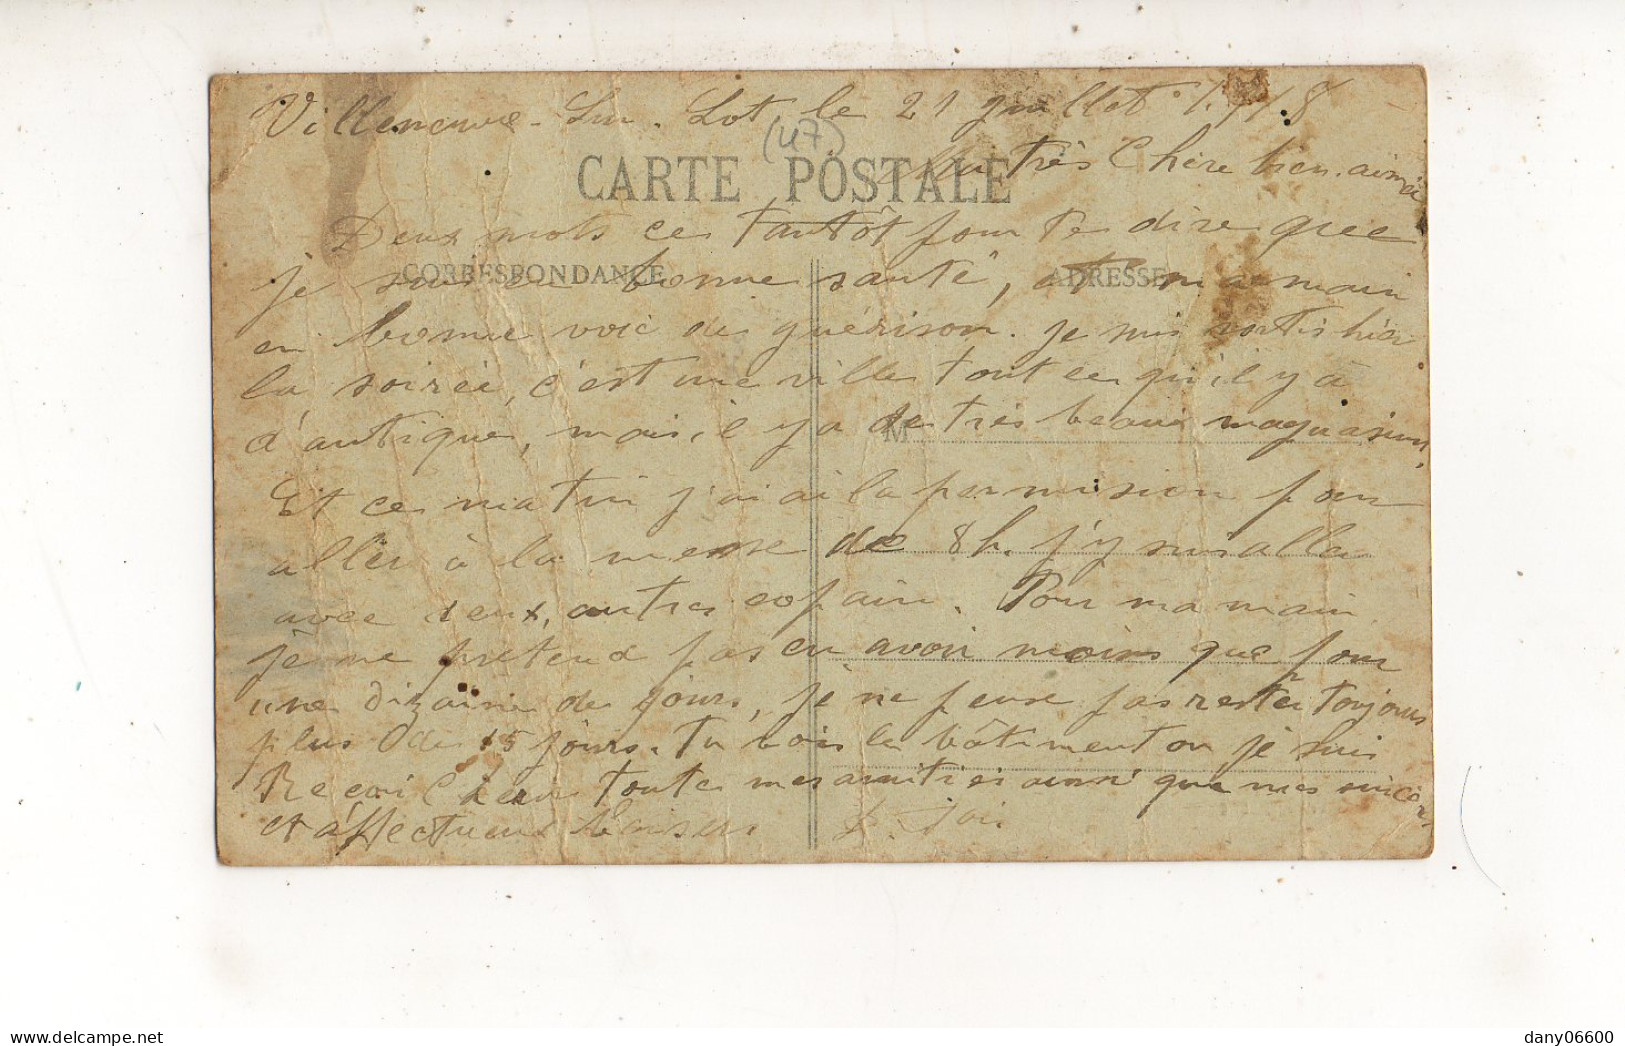 Villeneuve-Sur-Lot, le 21 juillet 1918
(47)
CARTE POSTALE
Ma très Chère bien aimée
Deux mots ce tantôt pour te dire que
CORRESPONDANCE
ADRESSE
je suis en bonne santé, et ma main
en bonne voie de guérison. je suis sortis hier
la soirée, c'est une ville tout ce qu'il y à
d'antique, mais, il y a de très beaux magasins,
M
Et ce matin j'ai ai la permission pour
aller à la messe de 8h. j'y suis alla
avec deux, autres copain. Pour ma main
je ne pretend pas en avoir moins que pour
une dizaine de jours, je ne pense pas rester toujours
plus de 15 jours. Tu vois le bâtiment ou je suis
Recoi Chère toute mes amitiés ainsi que mes sincères
et affectueux baisers
dany06600